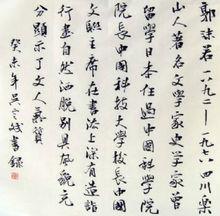 郭沫若一八九二—一九七八四川乐
山人著名文学家史学家曾
留学日本任过中国科学院
院长中国科技大学校长中国
文联主席在书法上深有造诣
行书自然洒脱别具风貌充
分显示了文人气质
癸未年 书录